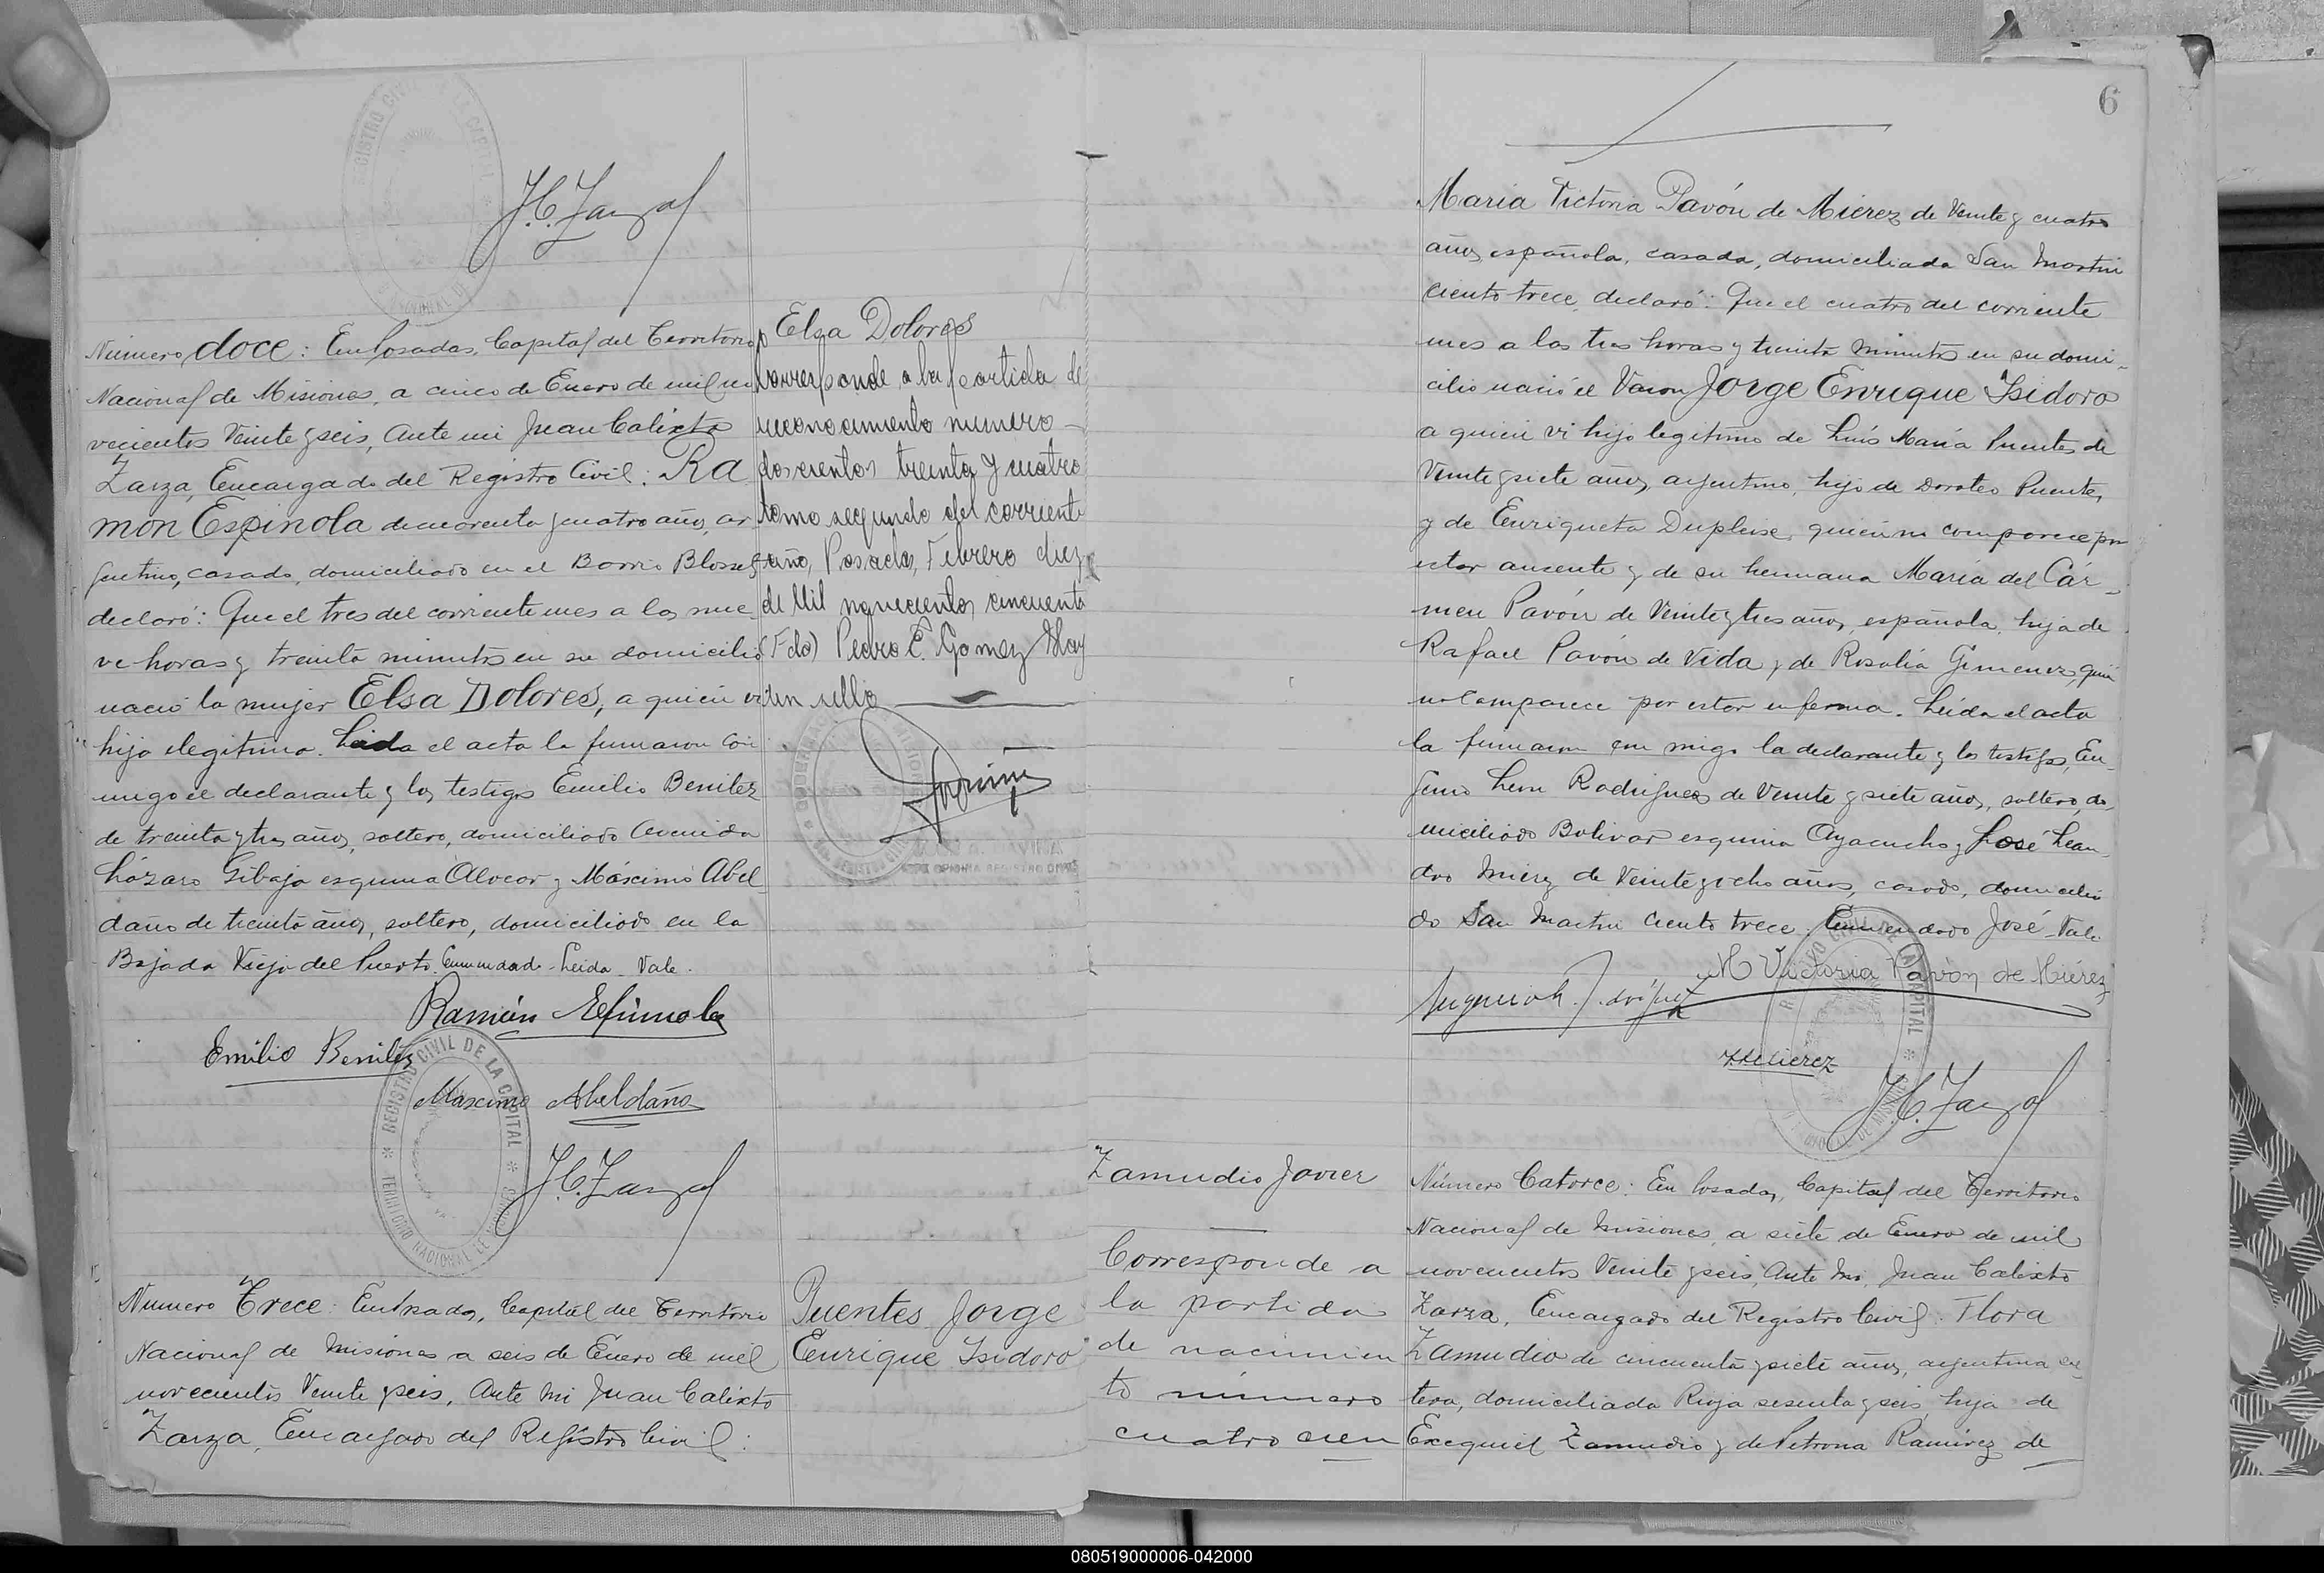 J. C. Zarza
Número doce: En Posadas, Capital del Territorio
Nacional de Misiones, a cinco de Enero de mil no
vecientos Veinte y seis, Ante mi Juan Calixto
Zarza, Encargado del Registro Civil: Ra
mon Espinola de cuarenta y cuatro años, ar
gentino, casado, domiciliado en el Barrio
declaró: Que el tres del corriente mes a las nue
ve horas y treinta minutos en su domicilio
nació la mujer Elsa Dolores, a quien vi
hija ilegitima. Leida el acta la firmaron con
migo el declarante y los testigos Emilio Benitez
de treinta y tres años, soltero, domiciliado Avenida
Lázaro Gibaja esquina Alvear y Máximo Abel
daño de treinta años, soltero, domiciliado en la
Bajada Vieja del Puerto. Enmendado - Leida - Vale.
Ramón Espinola
Emilio Benitez
Maximo Abeldaño
J. C. Zarza
REGISTRO CIVIL DE LA CAPITAL
TERRITORIO NACIONAL DE MISIONES
Elsa Dolores
corresponde a la partida de
reconocimiento numero
doscientos treinta y cuatro
tomo segundo del corriente
año, Posadas, Febrero diez
de Mil novecientos cincuenta
(Fdo) Pedro E. Gomez Hay
un sello
Número Trece: En Posadas, Capital del Territorio
Nacional de Misiones a seis de Enero de mil
novecientos Veinte y seis, Ante Mi Juan Calixto
Zarza, Encargado del Registro Civil:
Puentes Jorge
Enrique Isidoro
6
Maria Victoria Pavón de Mierez de Veinte y cuatro
años, española, casada, domiciliada San Martin
ciento trece, declaró: Que el cuatro del corriente
mes a las tres horas y treinta minutos en su domi-
cilio nació el Varon Jorge Enrique Isidoro
a quien vi hijo legitimo de Luis Maria Puentes de
Veinte y siete años, argentino, hijo de Doroteo Puentes
y de Enriqueta quien no comparece por
estar ausente y de su hermana Maria del Cár-
men Pavón de Veinte y tres años, española, hija de
Rafael Pavón de Vida y de Rosalia Gimenez, quien
no comparece por estar enferma. Leida el acta
la firmaron con migo la declarante y los testigos, Eu
genio Leon Rodriguez de Veinte y siete años, soltero, do-
miciliado Bolivar esquina Ayacucho y José Lean
dro Mierez de Veinte y ocho años, casado, domicilia
do San Martin ciento trece. Enmendado José - Vale
M Victoria Pavón de Miérez
JLMierez
J. C. Zarza
Zamudio Javier
Corresponde a
la partida
de nacimien
to número
cuatro cien
Número Catorce: En Posadas, Capital del Territorio
Nacional de Misiones, a siete de Enero de mil
novecientos Veinte y seis, Ante Mi, Juan Calixto
Zarza, Encargado del Registro Civil: Flora
Zamudio de cincuenta y siete años, argentina sol
tera, domiciliada Rioja sesenta y seis, hija de
Exequiel Zamudio y de Petrona Ramirez de
080519000006-042000